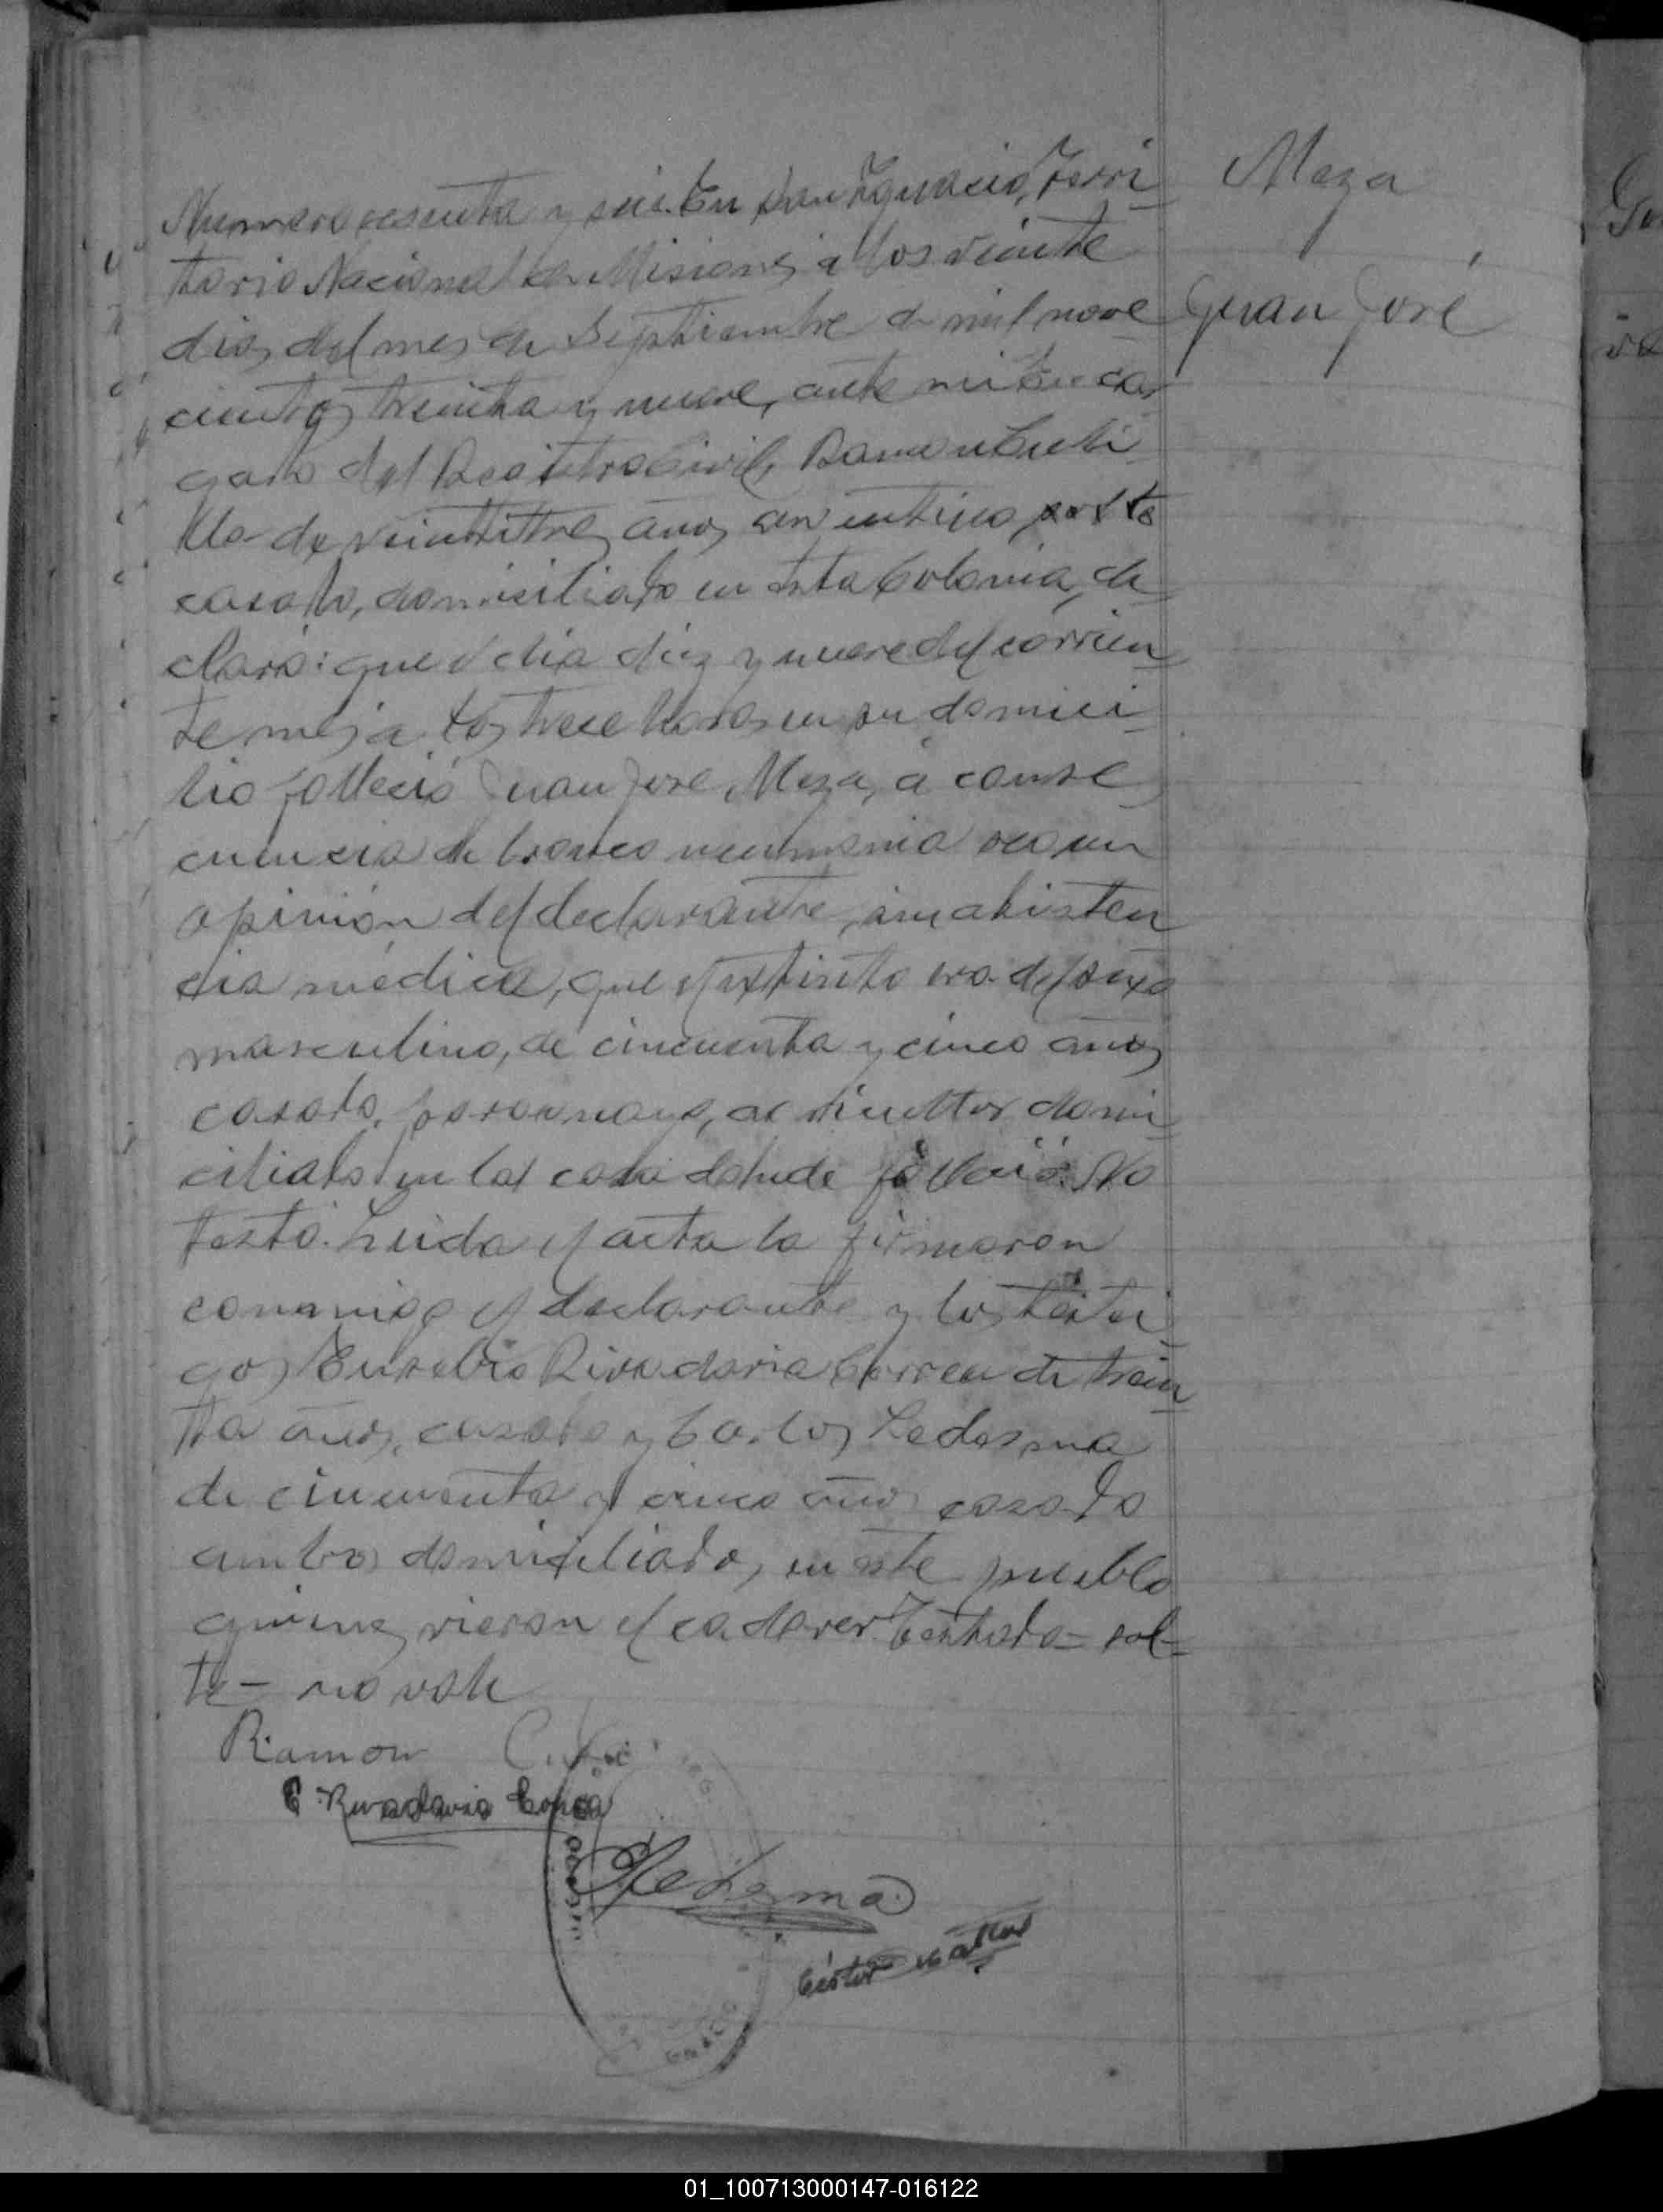 Meza
Juan José
Numero sesenta y seis. En San Ignacio, Terri
torio Nacional de Misiones a los veinte
dias del mes de Septiembre de mil nove
cientos treinta y nueve, ante mi Encar
gado del Registro Civil, Ramon
de veintitres años, argentino, solte
casado, domiciliado en esta Colonia, de
claró: que el dia diez y nueve del corrien
te mes a las trece horas en su domici
lio falleció Juan José Meza, a conse
cuencia de bronco neumonia segun
opinión del declarante, sin asisten
cia médica, que el extinto era del sexo
masculino, de cincuenta y cinco años
casado, paraguayo, agricultor, domi
ciliado en la casa donde falleció. No
testó. Leida el acta la firmaron
conmigo el declarante y los testi
gos Eusebio Rivadavia Correa de trein
ta años, casado y Carlos Ledesma
de cincuenta y cinco años casado
ambos domiciliados en este pueblo
quienes vieron el cadaver. Testado = sol=
te - no vale
Ramon
E. Rivadavia Correa
Ledesma
01_100713000147-016122